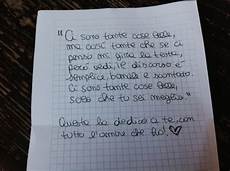 "Ci sono tante cose belle,
ma così tante che se ci
penso mi gira la testa,
però vedi, il discorso è
semplice, banale e scontato.
Ci sono tante cose belle,
solo che tu sei meglio."
Questa la dedico a te, con
tutto l'amore che ho! ♡